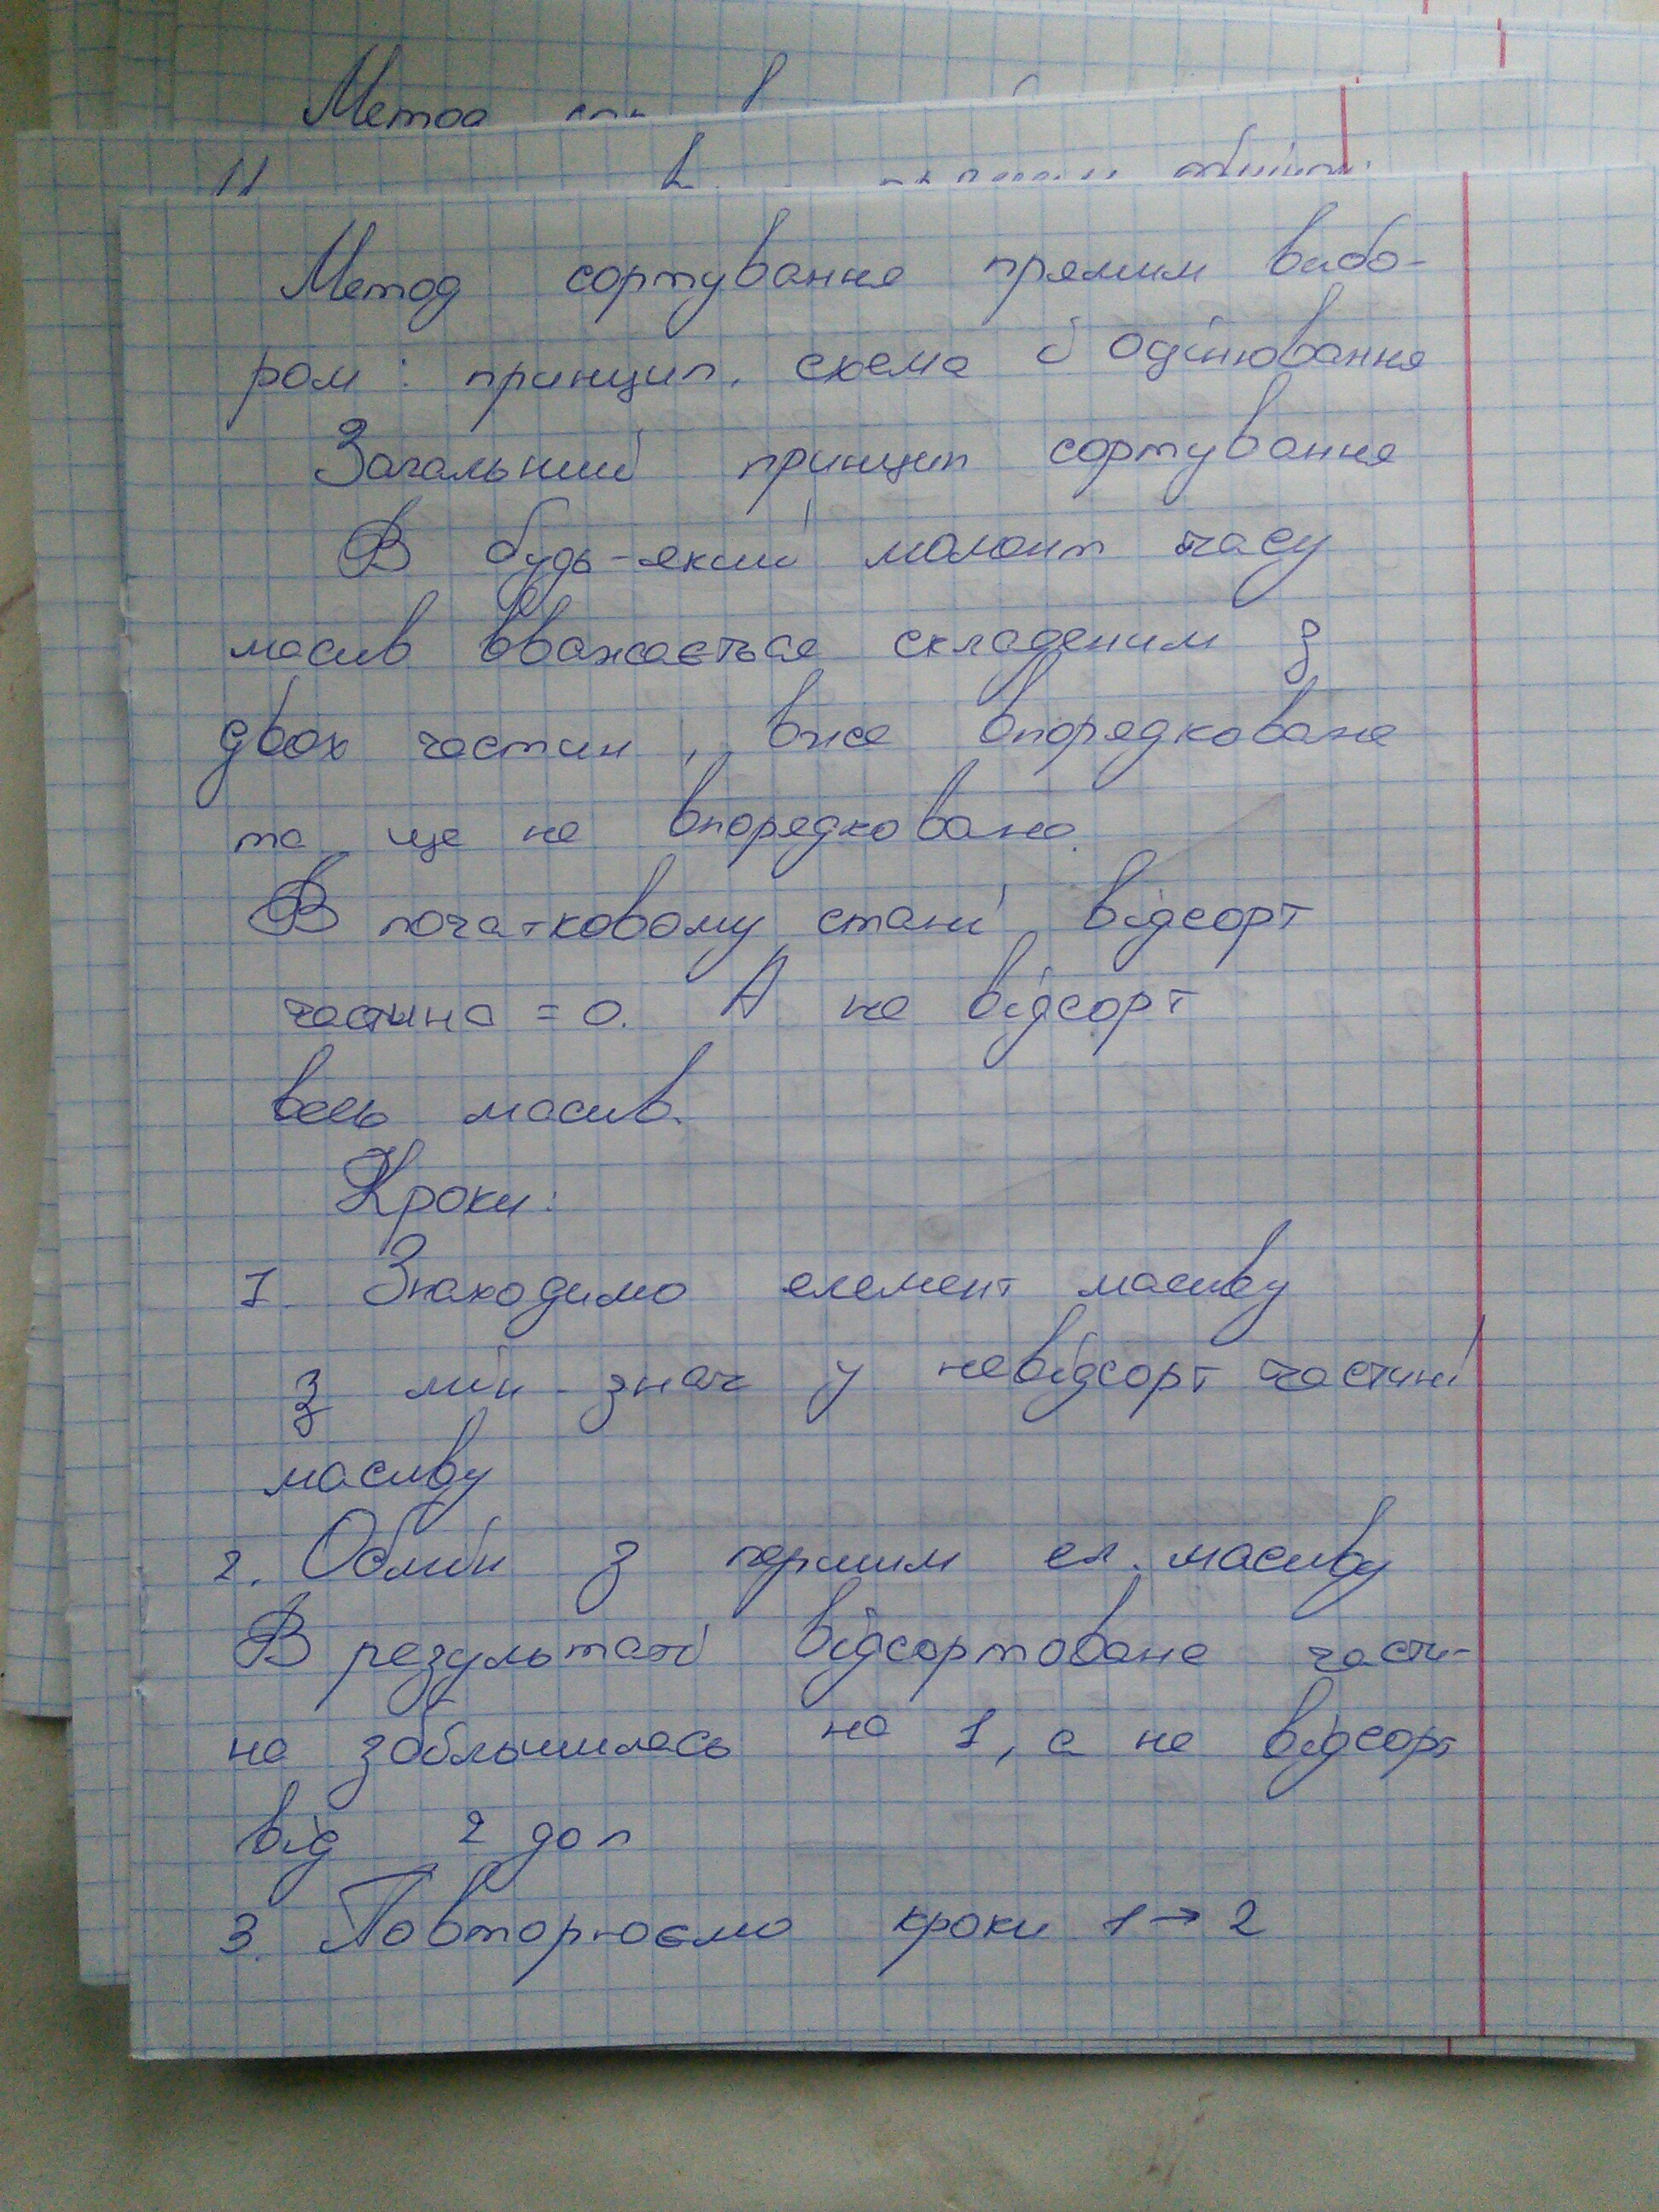 Метод
11
Метод сортування прямим вибо-
ром: принцип, схема і оцінювання
Загальний принцип сортування
В будь-який момент часу
масив вважається складеним з
двох частин, вже впорядкована
та ще не впорядкована.
В початковому стані відсорт
частина = 0. А не відсорт
весь масив.
Кроки:
1. Знаходимо елемент масиву
з мін знач у невідсорт частині
масиву
2. Обмін з першим ел. масиву
В результаті відсортована части-
на збільшилась на 1, а не відсорт
від 2 до n
3. Повторюємо кроки 1→2